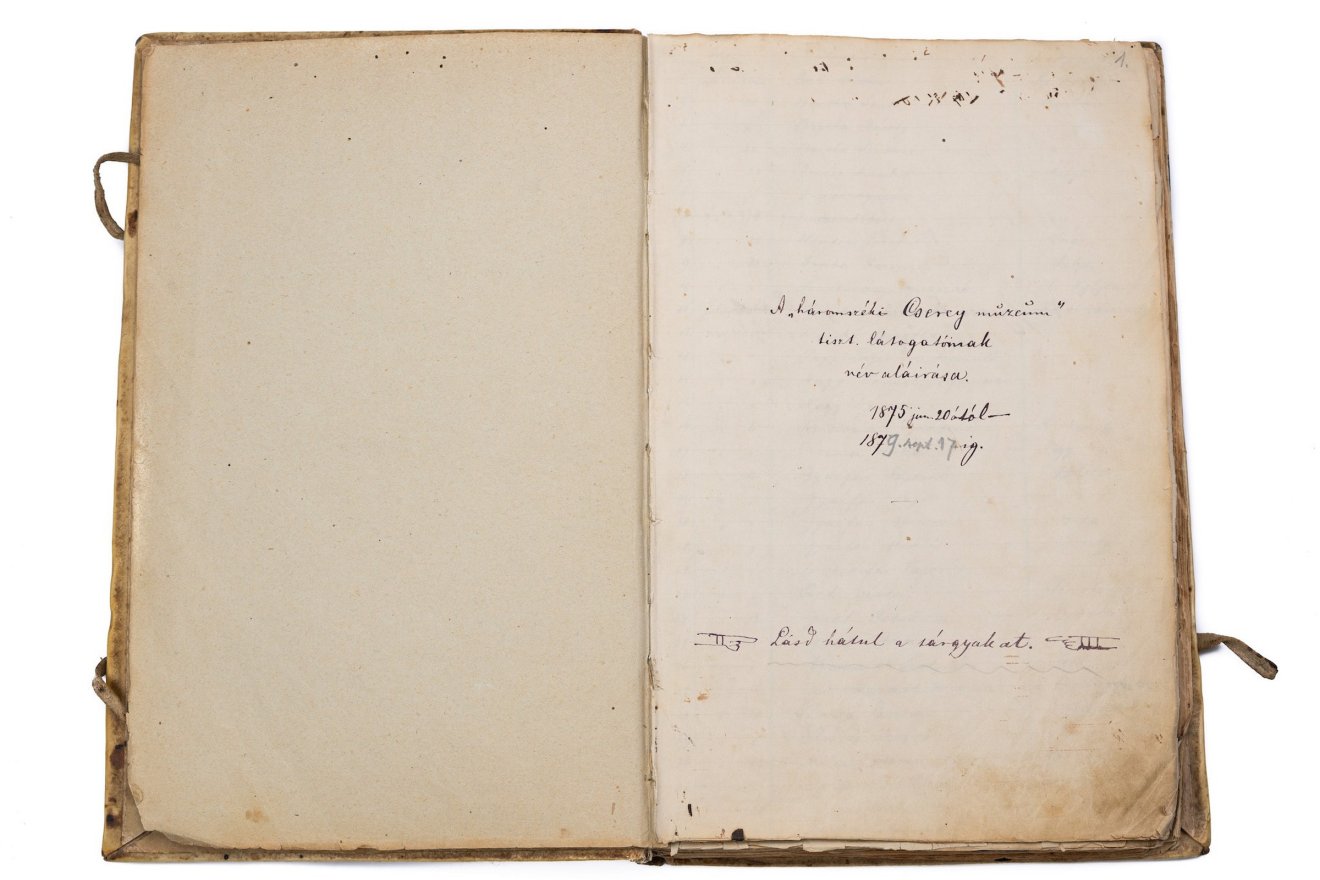 1.
A „háromszéki Cserey múzeum"
tiszt. látogatóinak
név aláirása.
1875 jun. 20ától—
1879. sept. 17-ig.
Lásd hátul a tárgyakat.